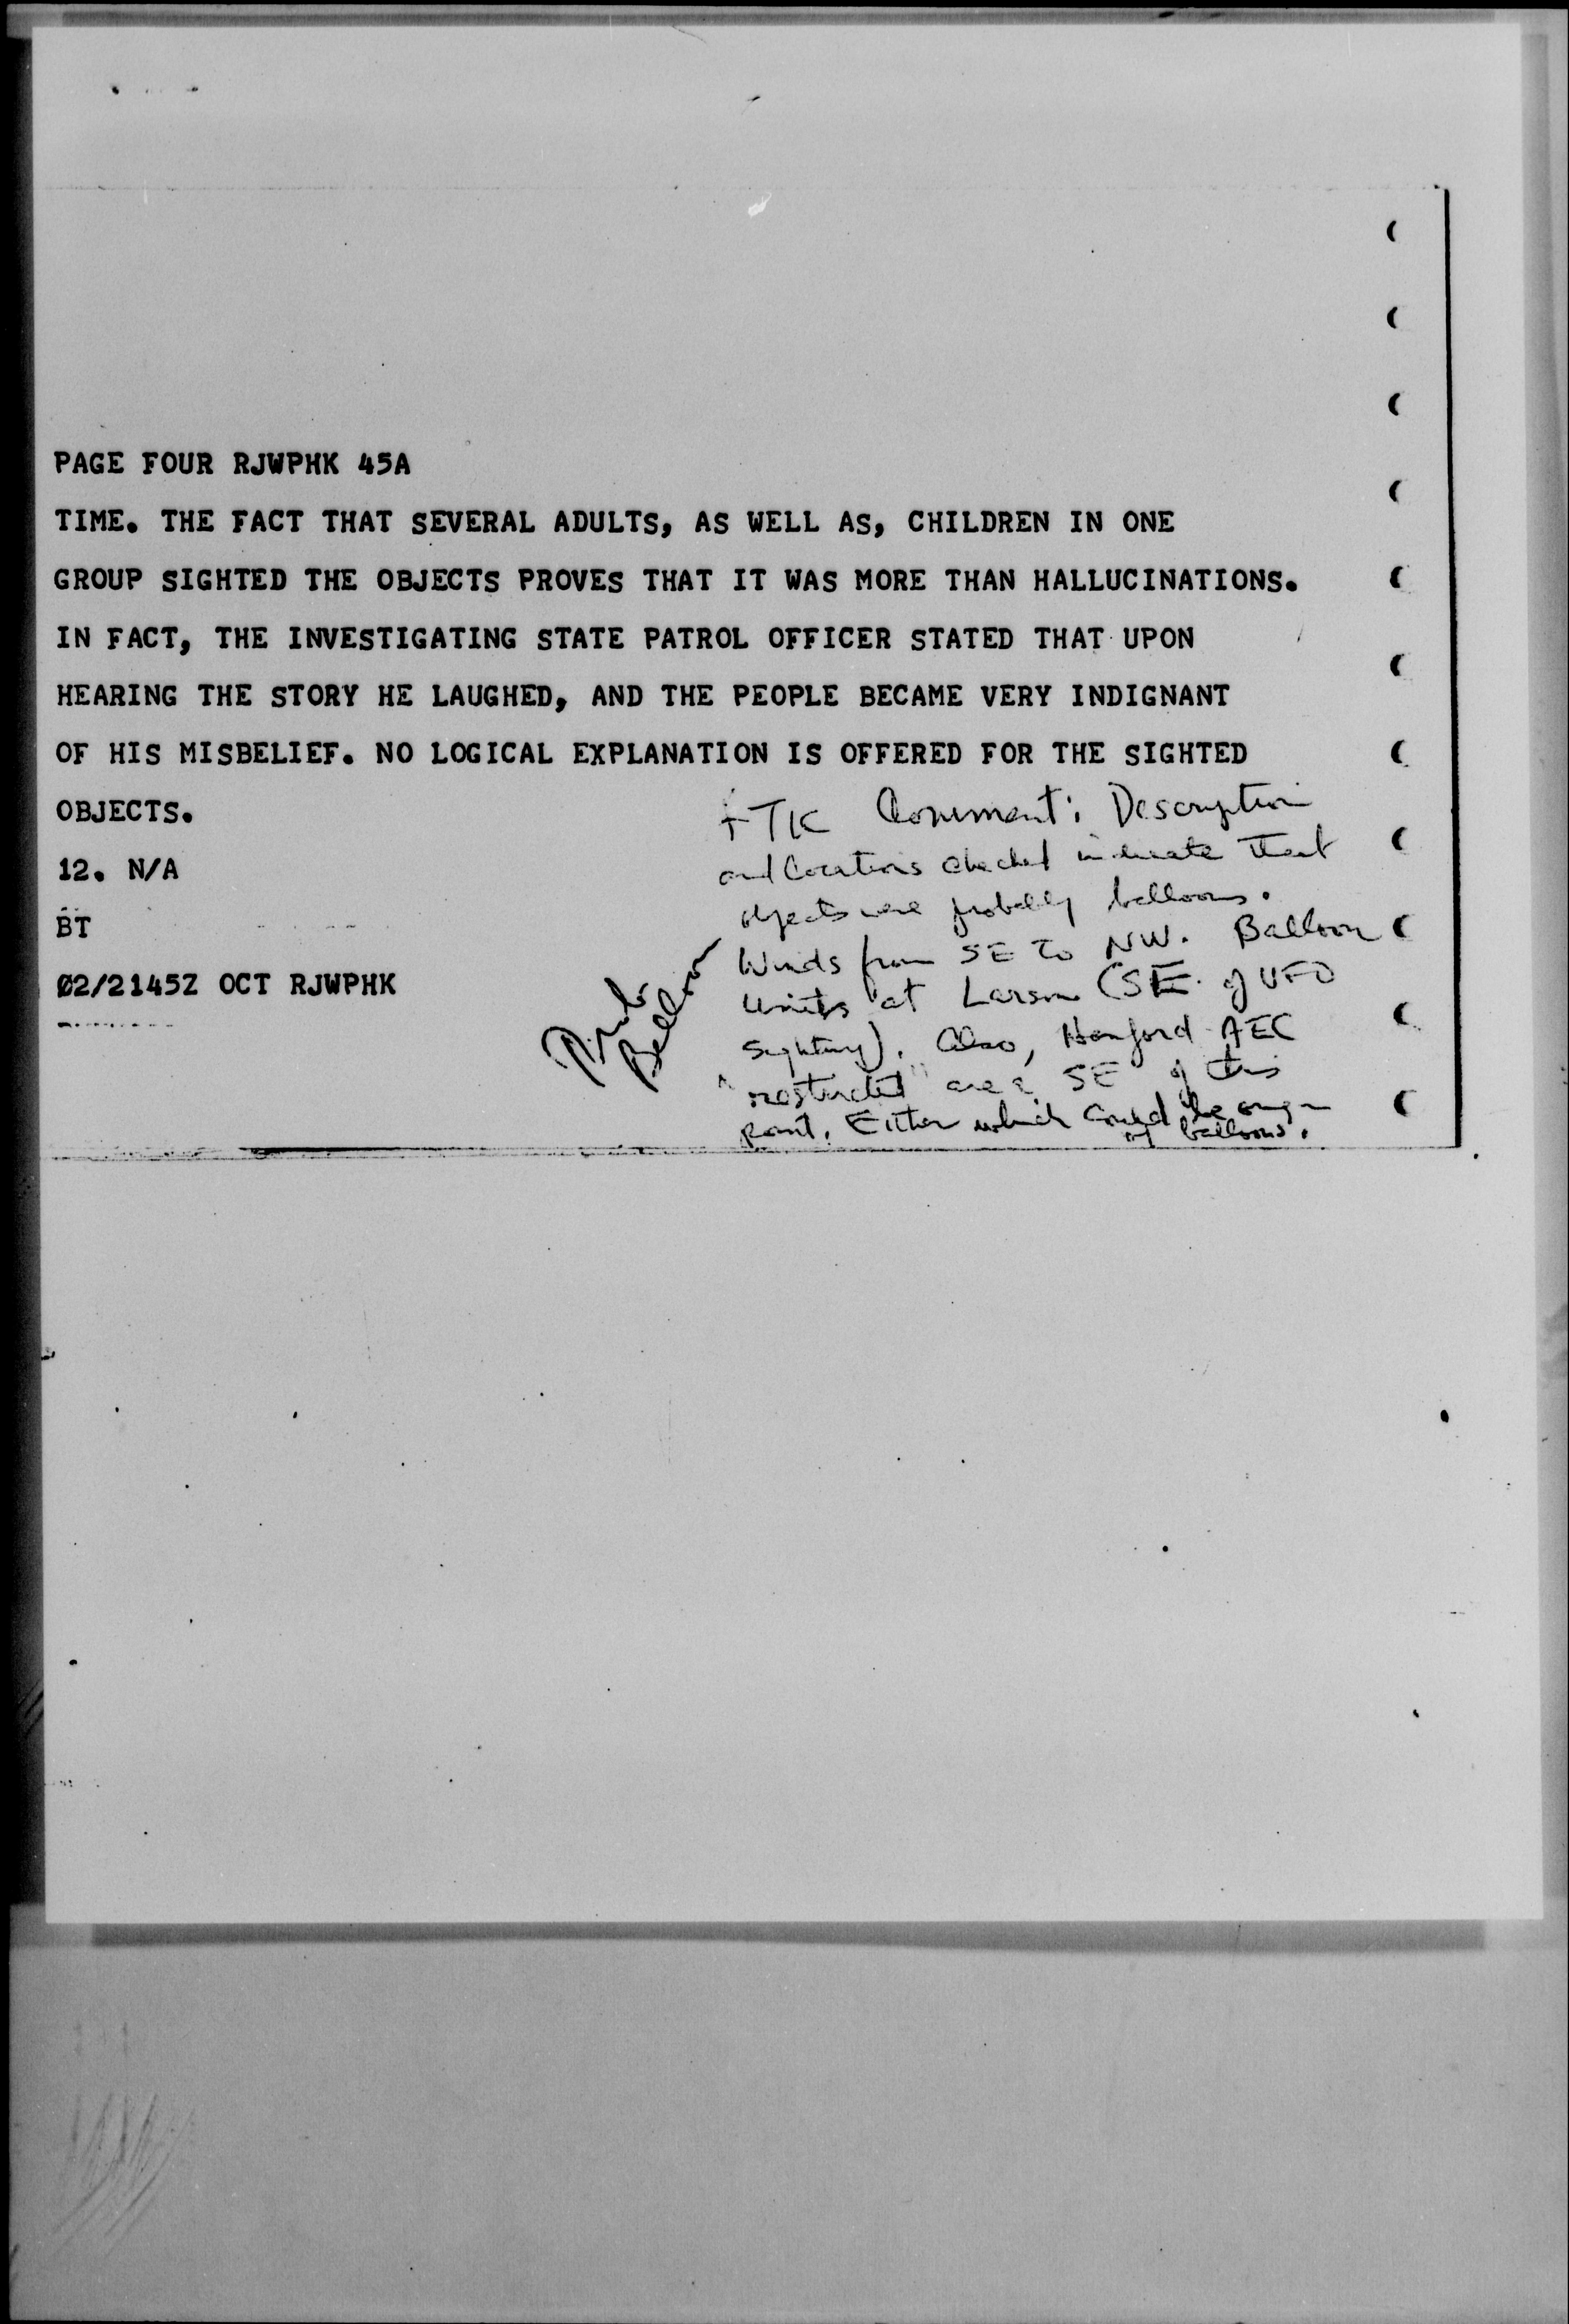 PAGE FOUR RJWPHK 45A
TIME. THE FACT THAT SEVERAL ADULTS, AS WELL AS, CHILDREN IN ONE
GROUP SIGHTED THE OBJECTS PROVES THAT IT WAS MORE THAN HALLUCINATIONS.
IN FACT, THE INVESTIGATING STATE PATROL OFFICER STATED THAT UPON
HEARING THE STORY HE LAUGHED, AND THE PEOPLE BECAME VERY INDIGNANT
OF HIS MISBELIEF. NO LOGICAL EXPLANATION IS OFFERED FOR THE SIGHTED
OBJECTS.
12. N/A
BT
Ø2/2145Z OCT RJWPHK
Comment: Description
and locations checked indicate that
objects were probably balloons.
Winds from SE to NW. Balloon
units at Larson (SE of UFO
sighting). Also, Hanford AEC
"restricted" area SE of this
point. Either which could be origin
of balloons.
Prob
Balloon